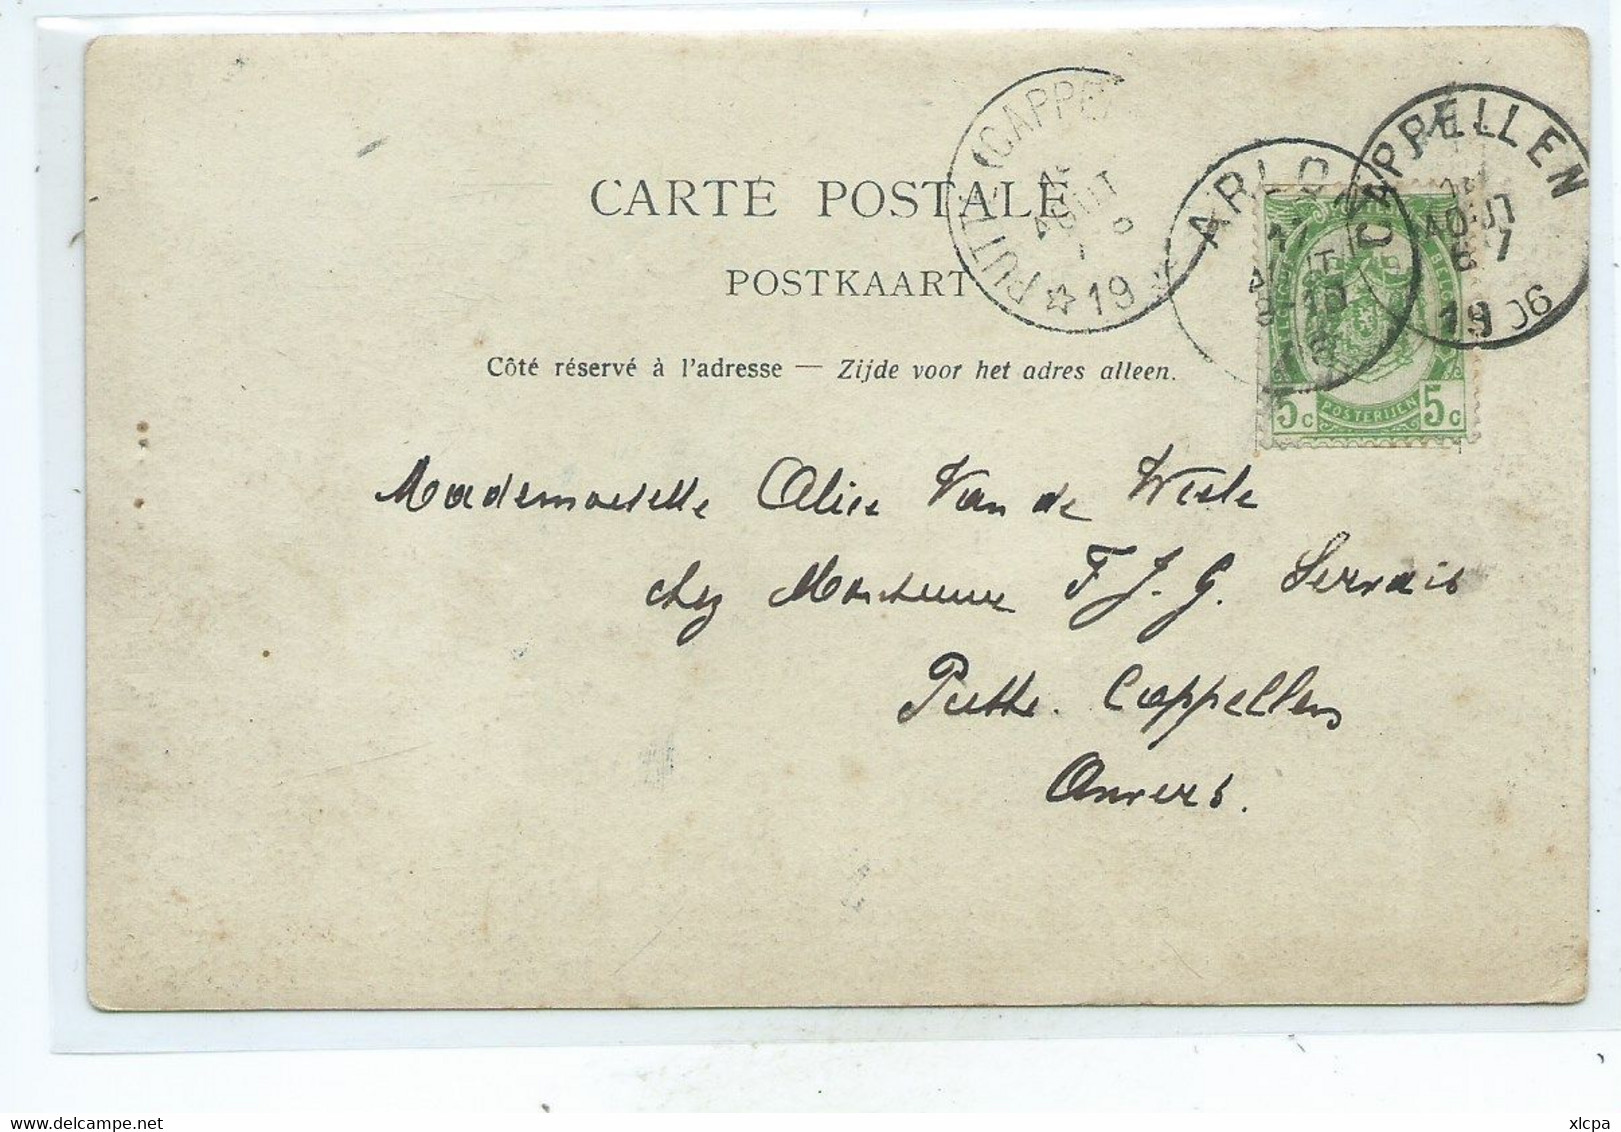 CARTE POSTALE
POSTKAART
Côté réservé à l'adresse — Zijde voor het adres alleen.
CAPPELLEN
AOUT
1906
ARLO
17
PUTTE (CAPPE
AOUT
19
5c POSTERIJEN 5c
Mademoiselle Alice Van de Wiele
chez Monsieur F. J. G. Servais
Putte. Cappellen
Anvers.
delcampe.net
xlcpa